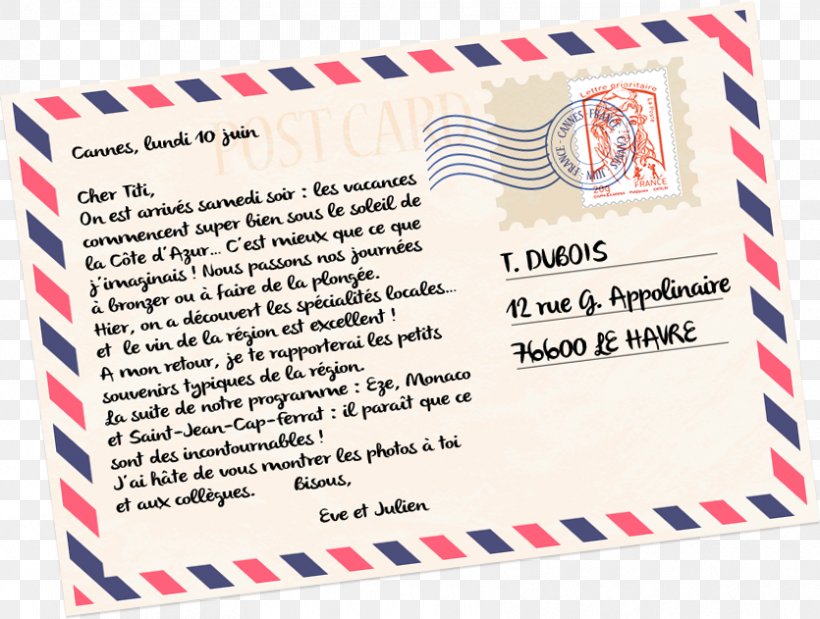 POST CARD
Cannes, lundi 10 juin
Cher Titi,
On est arrivés samedi soir : les vacances
commencent super bien sous le soleil de
la Côte d'Azur... C'est mieux que ce que
j'imaginais ! Nous passons nos journées
à bronzer ou à faire de la plongée.
Hier, on a découvert les spécialités locales...
et le vin de la région est excellent !
A mon retour, je te rapporterai les petits
souvenirs typiques de la région.
La suite de notre programme : Eze, Monaco
et Saint-Jean-Cap-ferrat : il paraît que ce
sont des incontournables !
J'ai hâte de vous montrer les photos à toi
et aux collègues. Bisous,
Eve et Julien
Lettre prioritaire
La Poste
20g
FRANCE
CANNES, FRANCE
T. DUBOIS
12 rue G. Appolinaire
76600 LE HAVRE